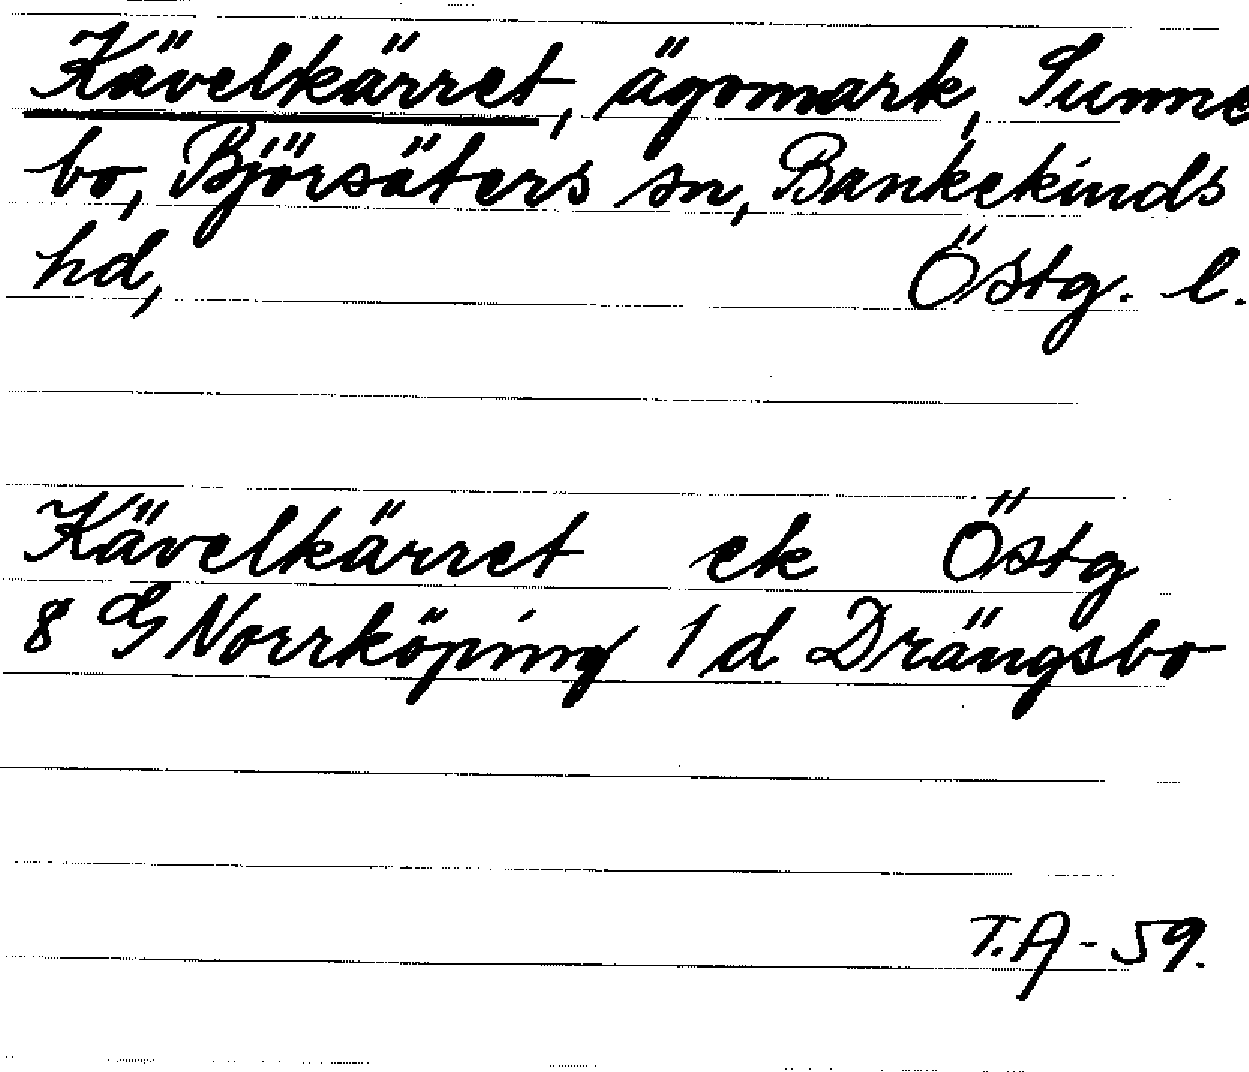 Kävelkärret, ägomark, Sunne
bo, Björsäters sn, Bankekinds
hd, Östg. l.
Kävelkärret ek Östg
8 G Norrköping 1 d Drängsbo
T.A - 59.